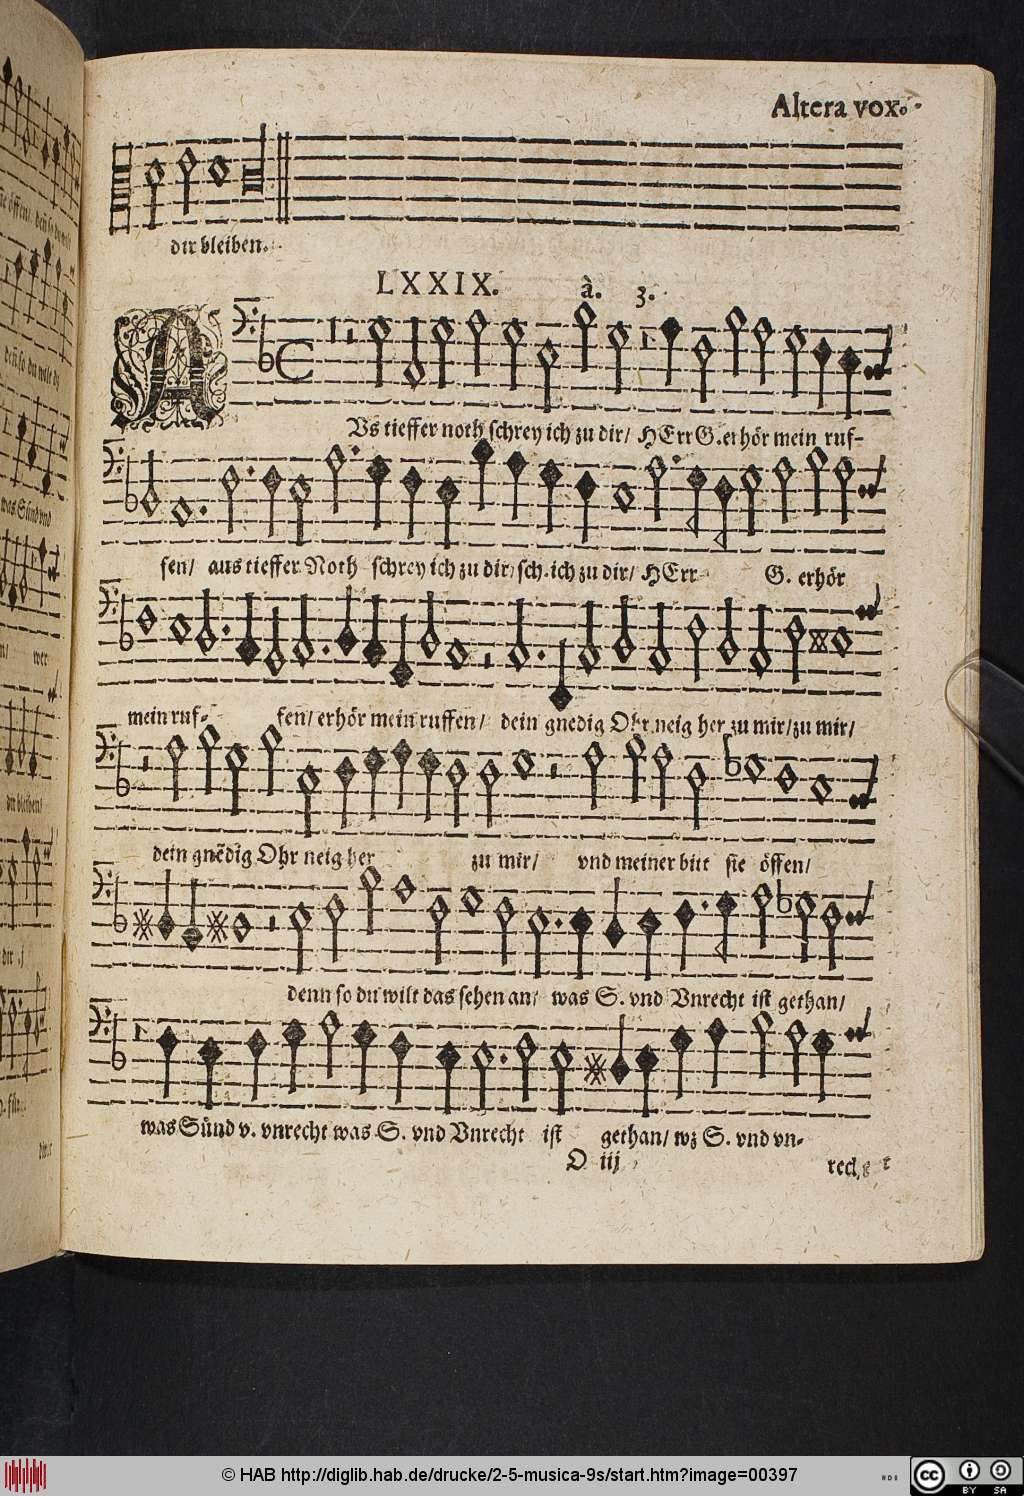 Altera vox.
dir bleiben.
LXXIX. à. 3.
AVs tieffer noth schrey ich zu dir/ HErr G. erhör mein ruf-
fen/ aus tieffer Noth schrey ich zu dir/ sch. ich zu dir/ HErr G. erhör
mein ruf- fen/ erhör mein ruffen/ dein gnedig Ohr neig her zu mir/ zu mir/
dein gnedig Ohr neig her zu mir/ vnd meiner bitt sie öffen/
denn so du wilt das sehen an/ was S. vnd Vnrecht ist gethan/
was Sünd v. vnrecht was S. vnd Vnrecht ist gethan/ wz S. vnd vn-
O iij
© HAB http://diglib.hab.de/drucke/2-5-musica-9s/start.htm?image=00397
cc BY SA